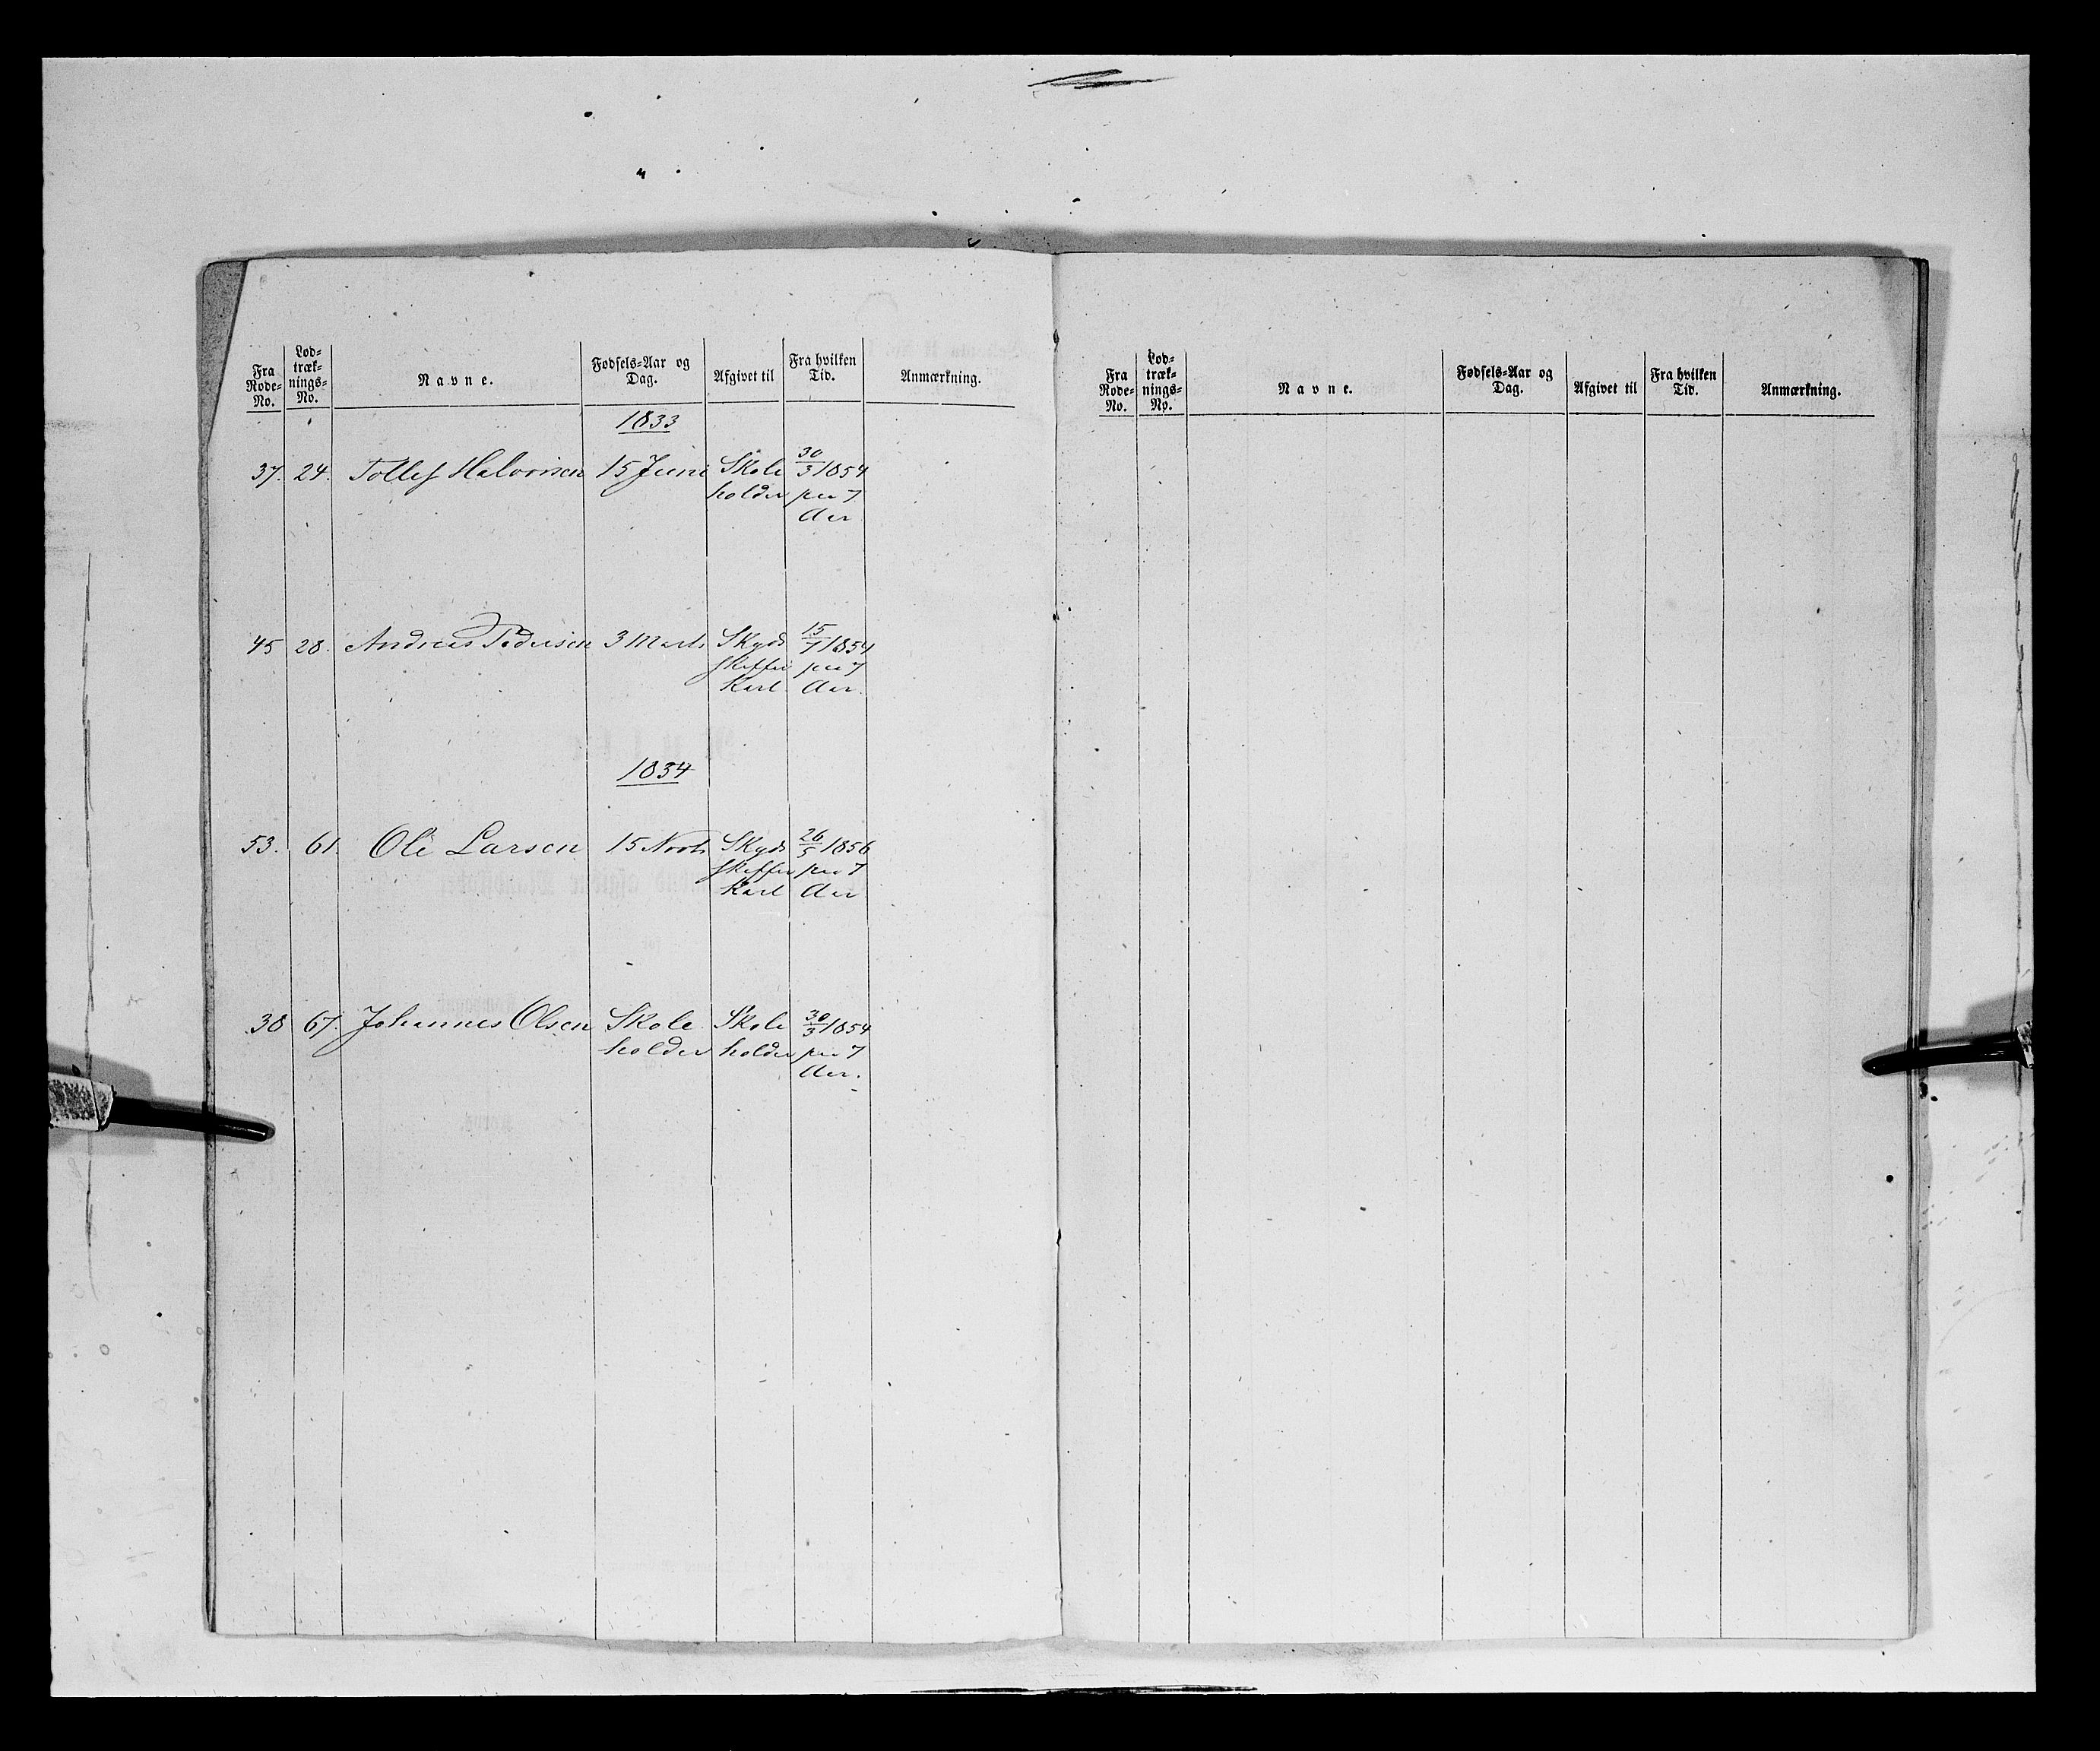 Fra Rode-No. Lod-træk-nings-No. Navne. Fødsels-Aar og Dag. Afgivet til Fra hvilken Tid. Anmærkning.
1833
37. 24. Tollef Halvorsen 15 Juni Skole 30/3 1854
holder paa 7
Aar
45 28. Andreas Pedersen 3 Marts Skyds 15/7 1854
skaffer paa 7
Karl Aar.
1834
53. 61. Ole Larsen 15 Novbr Skyds 26/5 1856
skaffer paa 7
Karl Aar
38 67. Johannes Olsen Skole Skole 30/3 1854
holder holder paa 7
Aar.
Fra Rode-No. Lod-træk-nings-No. Navne. Fødsels-Aar og Dag. Afgivet til Fra hvilken Tid. Anmærkning.